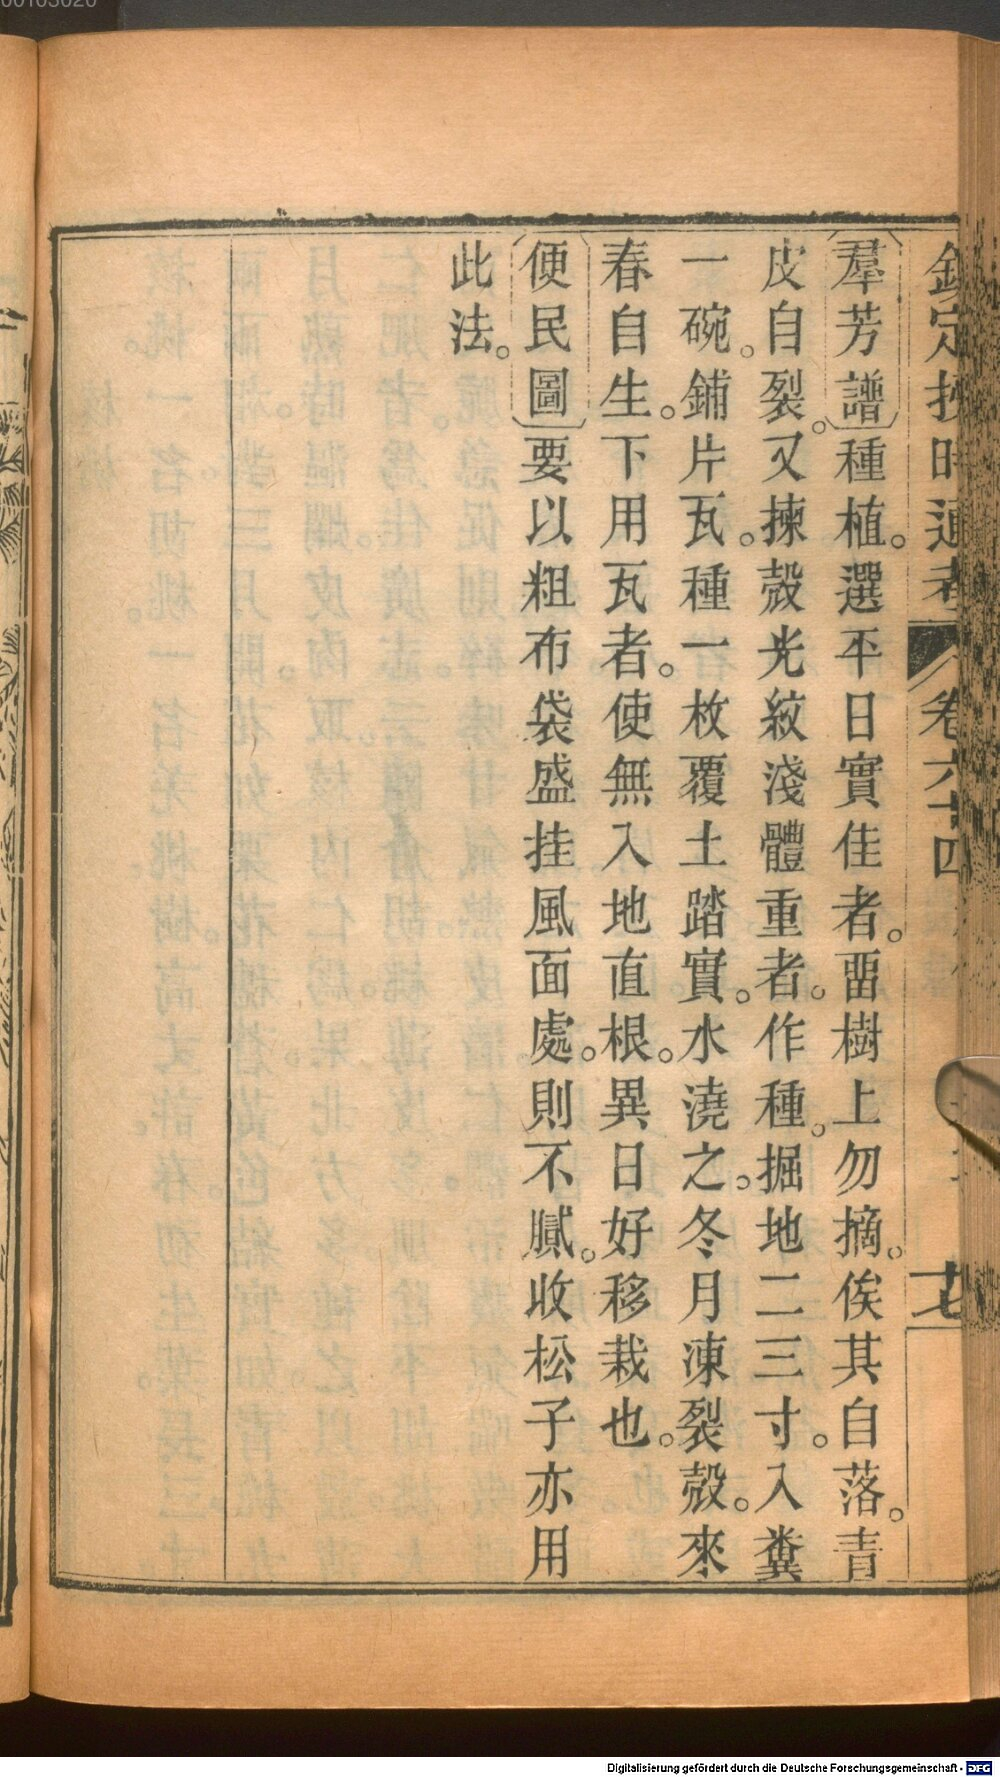 欽定授時通考 卷六十四
羣芳譜種植。選平日實佳者。畱樹上勿摘。俟其自落。青
皮自裂。又揀殼光紋淺體重者。作種。掘地二三寸。入糞
一碗。鋪片瓦。種一枚覆土踏實。水澆之。冬月凍裂殼。來
春自生。下用瓦者。使無入地直根。異日好移栽也。
便民圖要以粗布袋盛挂風面處。則不膩。收松子亦用
此法。
Digitalisierung gefördert durch die Deutsche Forschungsgemeinschaft - DFG